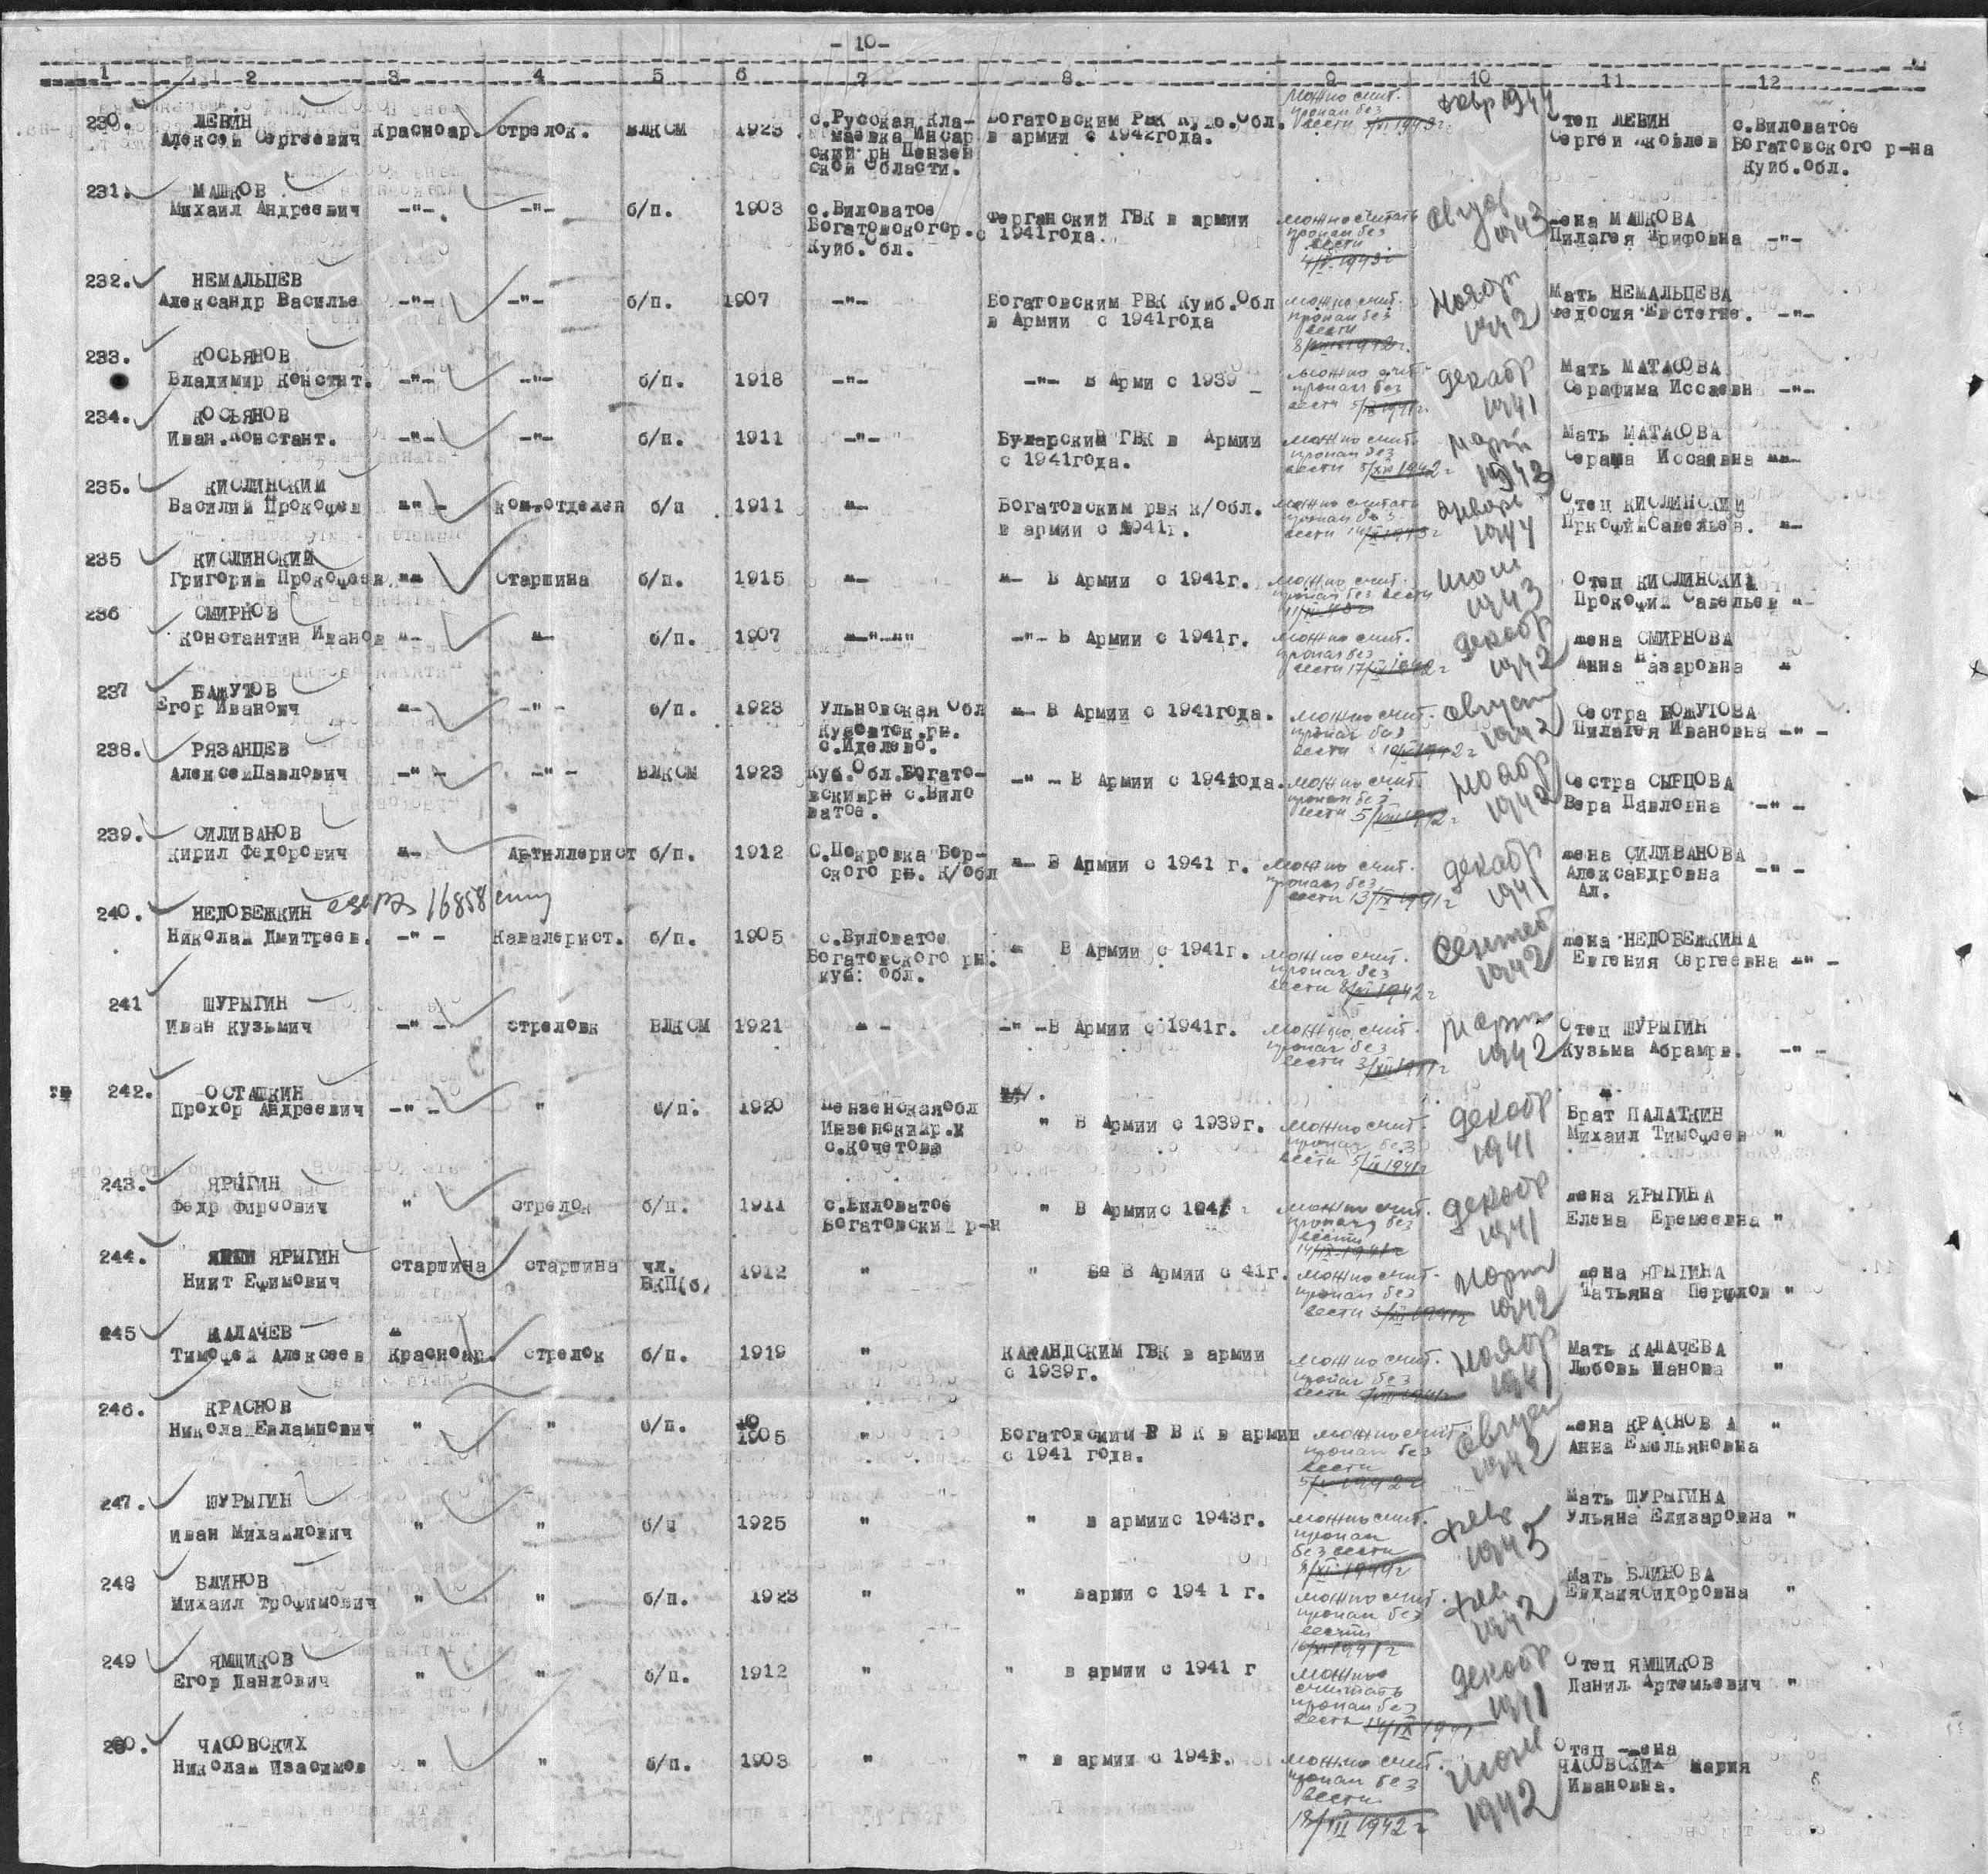 - 10-
1 2 3 4 5 6 7 8. 9 10 11 12
230. ЛЕВИН Алексей Сергеевич Красноар. стрелок. ВЛКСМ 1923 с.Русская Кла-
маевка Инсар
ский рн Пензен
ской Области.
Богатовским РВК Куйб.Обл.
в армии с 1942года.
можно счит.
пропал без
вести
февр 1944
Отец ЛЕВИН
Сергей Яковлев
с.Виловатое
Богатовского р-на
Куйб.обл.
231. МАШКОВ
Михаил Андреевич -"-. -"- б/п. 1903 с.Виловатое
Богатовскогор.
Куйб.Обл.
Ферганский ГВК в армии
с 1941года.
можно считать
пропал без
вести
1943
Жена МАШКОВА
Пилагея Арифовна -"-
232. НЕМАЛЬЦЕВ
Александр Василье -"- -"- б/п. 1907 -"- Богатовским РВК Куйб.Обл
в Армии с 1941года
можно счит.
пропал без
вести
ноябр
1942
Мать НЕМАЛЬЦЕВА
Федосия Евстегне. -"-
233. КОСЬЯНОВ
Владимир Констнт. -"- -"- б/п. 1918 -"- -"- в Арми с 1939
можно счит
пропал без
вести 5/IX 1941г.
декабр
1941
Мать МАТАСОВА
Серафима Иссаевн -"-
234. КОСЬЯНОВ
Иван.Констант. -"- -"- б/п. 1911 -"- Бухарский ГВК в Армии
с 1941года.
можно счит.
пропал без
вести 5/XII 1942г
март
1943
Мать МАТАСОВА
Серафа Иссаевна -"-
235. КИСЛИНСКИЙ
Василий Прокофев -"- ком.отделен б/п 1911 -"- Богатовским рвк к/обл.
в армии с 1941г.
можно считать
пропал без
вести
январ
1944
Отец КИСЛИНСКИЙ
Пркофий Савельев. -"-
235 КИСЛИНСКИЙ
Григорий Прокофеев. -"- Старшина б/п. 1915 -"- -"- В Армии с 1941г.
можно счит.
пропал без вести
1943
Отец КИСЛИНСКИЙ
Прокофий Савельев "-
236 СМИРНОВ
Константин Иванов "- "- б/п. 1907 -"-"-"" -"- В Армии с 1941г.
можно счит.
пропал без
вести
декабр
1942
Жена СМИРНОВА
Анна Назаровна "
237 БАЖУТОВ
Егор Иванович "- -"- б/п. 1923 Ульновская Обл
с.Иделево.
-"- В Армии с 1941года.
можно счит.
пропал без
вести
август
1942
Сестра БОЖУТОВА
Пилагея Ивановна -"-
238. РЯЗАНЦЕВ
АлексейПавлович -"- -"- ВЛКСМ 1923 Куб.Обл.Богато-
вскийрн с.Вило
ватое.
-"- В Армии с 1941ода.
можно счит.
пропал без
вести
ноябр
1942
Сестра СЫРЦОВА
Вера Павловна -"-
239. СИЛИВАНОВ
Кирил Федорович "- Артиллерист б/п. 1912 С.Покровка Бор-
ского рн. К/обл
-"- В Армии с 1941 г.
можно счит.
пропал без
вести 13/IX 1941г
декабр
1941
Жена СИЛИВАНОВА
Александровна
Ал. -"-
240. НЕДОБЕЖКИН 16858
Николай Дмитреев. -"- Кавалерист. б/п. 1905 с.Виловатое
Богатовского рн.
куб: обл.
" В Армии с 1941г.
можно счит.
пропал без
вести
сентяб
1942
Жена НЕДОБЕЖКИНА
Евгения Сергеевна -"-
241 ШУРЫГИН
Иван Кузьмич -"- стреловк ВЛКСМ 1921 "- -"-В Армии с 1941г.
можно счит.
пропал без
вести 3/XII 1941г
март
1942
Отец ШУРЫГИН
Кузьма Абрамрв. -"-
242. ОСТАШКИН
Прохор Андреевич -"- " б/п. 1920 Пензенскаяобл
с.Кочетовв
" В Армии с 1939г.
можно счит.
пропал без
вести 5/IX 1941г
декабр
1941
Брат ПАЛАТКИН
Михаил Тимофеев "
243. ЯРЫГИН
Федр Фирсович " стрелок б/п. 1911 с.Виловатое
Богатовский р-н
" В Армиис 1941
можно счит.
пропал без
вести
14/IX-1941г
декабр
1941
Жена ЯРЫГИНА
Елена Еремеевна "
244. ЯРЫГИН
Никт Ефимович старшина старшина чл.
ВКП(б) 1912 " " В Армии с 41г.
можно счит.
пропал без
вести
март
1942
Жена ЯРЫГИНА
Татьяна Перфлов "
245 КАЛАЧЕВ "
Тимофей Алексеев Красноар. стрелок б/п. 1919 " КАКАНДСКИМ ГВК в армии
с 1939г.
можно счит.
пропал без
вести
ноябр
1941
Мать КАЛАЧЕВА
Любовь Ианова "
246. КРАСНОВ
НиколаЙЕвлампович " " б/п. 1905 " Богатовским Р В К в армии
с 1941 года.
можно счит
пропал без
вести
август
1942
Жена КРАСНОВ А "
Анна Емельяновна
247. ШУРЫГИН
Иван Михайлович " " б/п 1925 " " в армиис 1943г.
можно счит.
пропал
без вести
фев
1945
Мать ШУРЫГИНА
Ульяна Елизаровна "
248 БЛИНОВ
Михаил Трофимович " " б/п. 1923 " " варми с 194 1 г.
можно счит.
пропал без
вести
фев
1942
Мать БЛИНОВА
ЕвдаияСидоровна "
249 ЯМЩИКОВ
Егор Данлович " " б/п. 1912 " " в армии с 1941 г
можно
считать
пропал без
вести 14/IX 1941
декабр
1941
Отец ЯМЩИКОВ
Данил Артемьевич "
ЧАСОВСКИХ
Николай Изасимов " " б/п. 1903 " " в армии с 194г.
можно счит.
пропал без
вести
18/III 1942г
1942
Отец -жена
ЧАСОВСКИХ Мария
Ивановна.